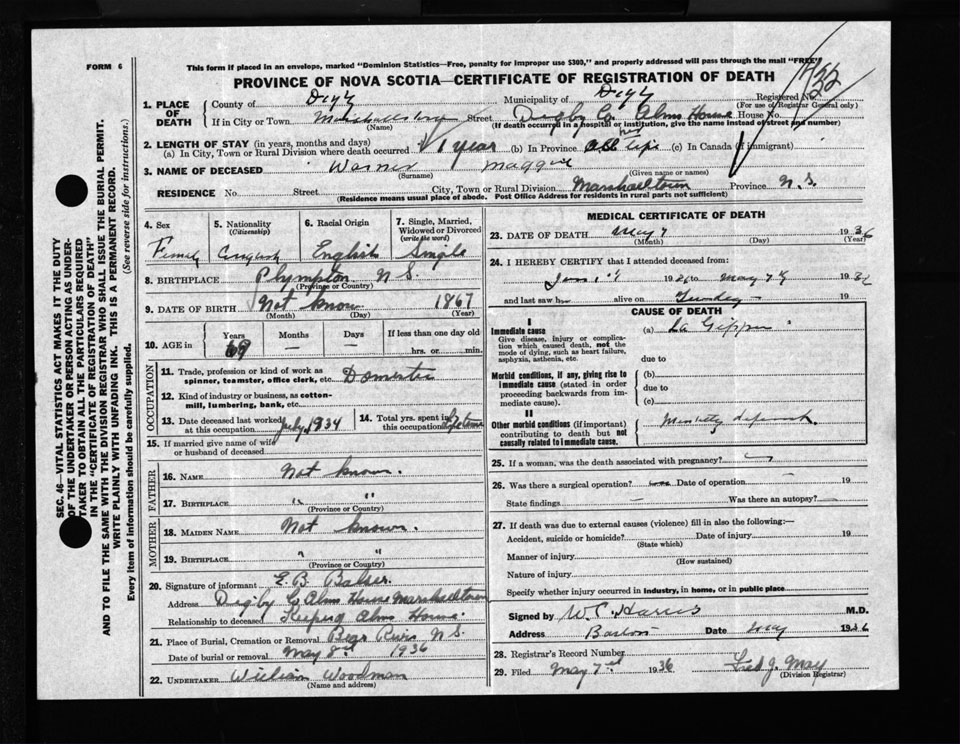 FORM 6
This form if placed in an envelope, marked "Dominion Statistics—Free, penalty for improper use $300," and properly addressed will pass through the mail "FREE"
PROVINCE OF NOVA SCOTIA—CERTIFICATE OF REGISTRATION OF DEATH
1. PLACE OF DEATH
County of Digby Municipality of Digby Registered No.
(For use of Registrar General only)
If in City or Town Marshalltown Street Digby Co. Alms House House No.
(Name) (If death occurred in a hospital or institution, give the name instead of street and number)
2. LENGTH OF STAY (in years, months and days)
(a) In City, Town or Rural Division where death occurred 1 year (b) In Province all her life (c) In Canada (if immigrant)
3. NAME OF DECEASED Warner Maggie
(Surname) (Given name or names)
RESIDENCE No. Street City, Town or Rural Division Marshalltown Province N.S.
(Residence means usual place of abode. Post Office Address for residents in rural parts not sufficient)
SEC. 46—VITAL STATISTICS ACT MAKES IT THE DUTY
OF THE UNDERTAKER OR PERSON ACTING AS UNDER-
TAKER TO OBTAIN ALL THE PARTICULARS REQUIRED
IN THE "CERTIFICATE OF REGISTRATION OF DEATH"
AND TO FILE THE SAME WITH THE DIVISION REGISTRAR WHO SHALL ISSUE THE BURIAL PERMIT.
WRITE PLAINLY WITH UNFADING INK. THIS IS A PERMANENT RECORD.
Every item of information should be carefully supplied. (See reverse side for instructions.)
4. Sex 5. Nationality 6. Racial Origin 7. Single, Married,
(Citizenship) Widowed or Divorced
(write the word)
English Single
8. BIRTHPLACE Plympton N S.
(Province or Country)
9. DATE OF BIRTH Not know 1867
(Month) (Day) (Year)
10. AGE in Years Months Days If less than one day old
69 — — hrs. or min.
OCCUPATION
11. Trade, profession or kind of work as
spinner, teamster, office clerk, etc. Domestic
12. Kind of industry or business, as cotton-
mill, lumbering, bank, etc.
13. Date deceased last worked at this occupation July 1934
14. Total yrs. spent in this occupation Life time
15. If married give name of wife
or husband of deceased
FATHER
16. NAME Not known.
17. BIRTHPLACE " "
(Province or Country)
MOTHER
18. MAIDEN NAME Not known.
19. BIRTHPLACE " "
(Province or Country)
20. Signature of informant E. B. Balser.
Address Digby Co Alms House Marshalltown
Relationship to deceased Keeper Alms House.
21. Place of Burial, Cremation or Removal Bear River N S.
Date of burial or removal May 8th 1936
22. UNDERTAKER William Woodman
(Name and address)
MEDICAL CERTIFICATE OF DEATH
23. DATE OF DEATH May 7 1936
(Month) (Day) (Year)
24. I HEREBY CERTIFY that I attended deceased from:
19 to May 7 19
and last saw h alive on 19
CAUSE OF DEATH
I
Immediate cause (a) La Grippe
Give disease, injury or complica-
tion which caused death, not the
mode of dying, such as heart failure,
asphyxia, asthenia, etc. due to
Morbid conditions, if any, giving rise to (b)
immediate cause (stated in order due to
proceeding backwards from im-
mediate cause). (c)
II
Other morbid conditions (if important)
contributing to death but not
causally related to immediate cause.
25. If a woman, was the death associated with pregnancy?
26. Was there a surgical operation? Date of operation 19
State findings Was there an autopsy?
27. If death was due to external causes (violence) fill in also the following:—
Accident, suicide or homicide? Date of injury 19
(State which)
Manner of injury
(How sustained)
Nature of injury
Specify whether injury occurred in industry, in home, or in public place
Signed by W C Harris M.D.
Address Barton Date May 1936
28. Registrar's Record Number
29. Filed May 7th 1936 Fred J. May
(Division Registrar)